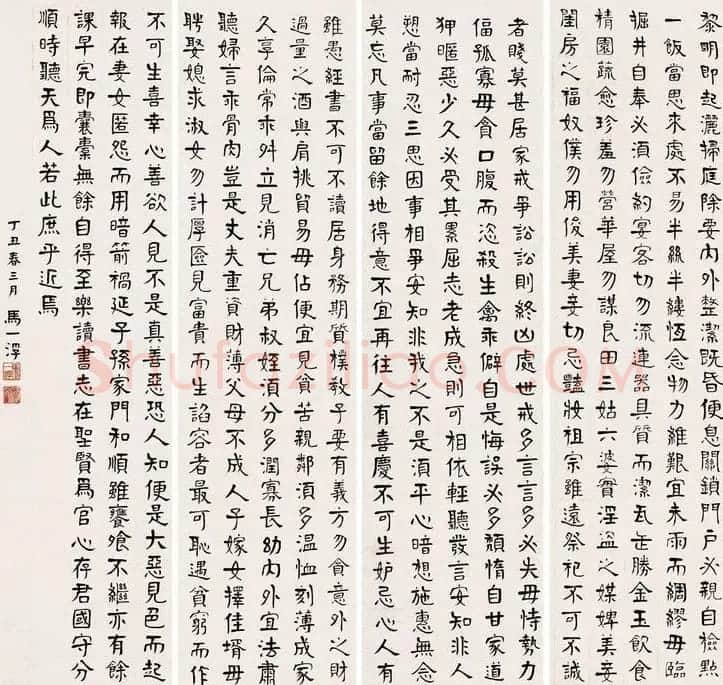 黎明即起灑掃庭除要內外整潔既昏便息關鎖門戶必親自檢點
一飯當思來處不易半絲半縷恆念物力維艱宜未雨而綢繆毋臨
掘井自奉必須儉約宴客切勿流連器具質而潔瓦缶勝金玉飲食
精園蔬愈珍羞勿營華屋勿謀良田三姑六婆實淫盜之媒婢美妾
閨房之福奴僕勿用俊美妻妾切忌豔妝祖宗雖遠祭祀不可不誠
者賤莫甚居家戒爭訟訟則終凶處世戒多言言多必失毋恃勢力
偪孤寡毋貪口腹而恣殺生禽乖僻自是悔誤必多頹惰自甘家道
狎暱惡少久必受其累屈志老成急則可相依輕聽發言安知非人
愬當耐忍三思因事相爭安知非我之不是須平心暗想施惠無念
莫忘凡事當留餘地得意不宜再往人有喜慶不可生妒忌心人有
雖愚經書不可不讀居身務期質樸教子要有義方勿貪意外之財
過量之酒與肩挑貿易毋佔便宜見貧苦親鄰須多溫恤刻薄成家
久享倫常乖舛立見消亡兄弟叔姪須分多潤寡長幼內外宜法肅
聽婦言乖骨肉豈是丈夫重資財薄父母不成人子嫁女擇佳壻毋
聘娶媳求淑女勿計厚匳見富貴而生諂容者最可恥遇貧窮而作
不可生喜幸心善欲人見不是真善惡恐人知便是大惡見色而起
報在妻女匿怨而用暗箭禍延子孫家門和順雖饔飧不繼亦有餘
課早完即囊橐無餘自得至樂讀書志在聖賢爲官心存君國守分
順時聽天爲人若此庶乎近焉
丁丑春三月 馬一浮
Shufaziliao.com